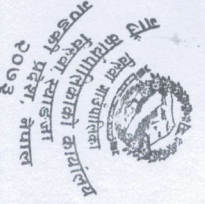 बिरुवा गाउँपालिका
गाउँ कार्यपालिकाको कार्यालय
बिरुवा स्याङजा
गण्डकी प्रदेश, नेपाल
२०७३